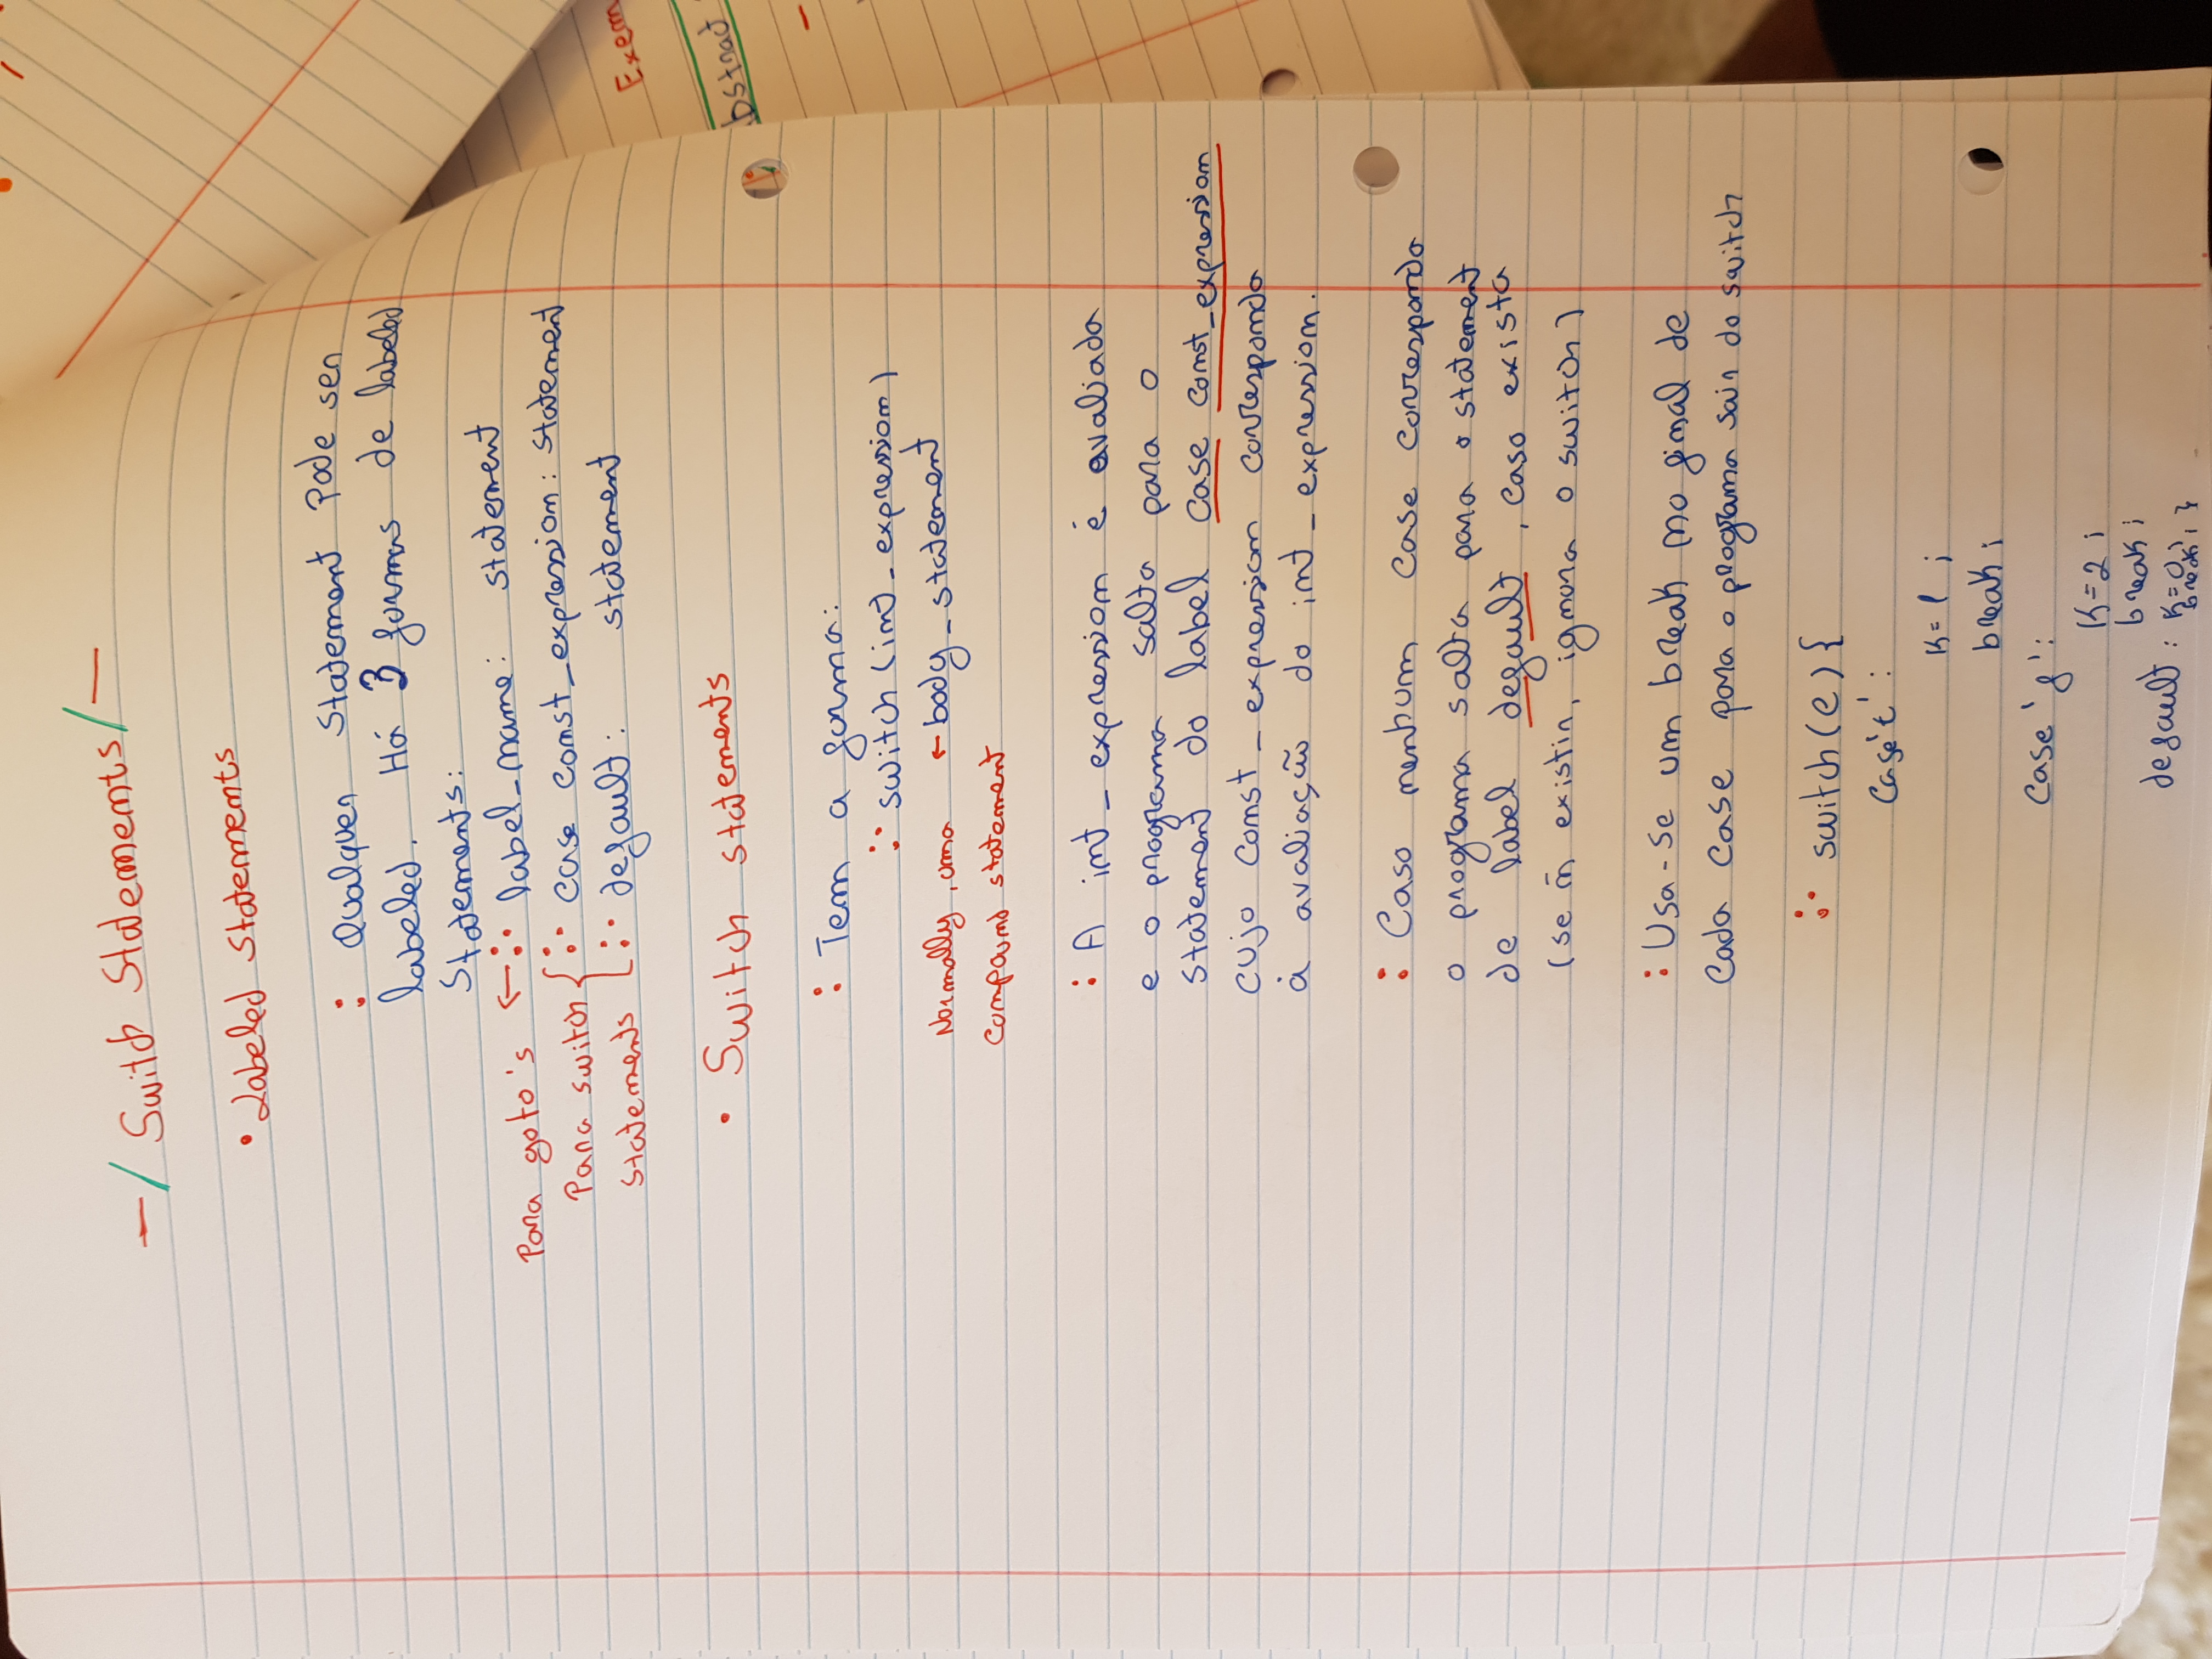 -/ Switch Statements /-
• Labeled Statements
: Qualquer Statement Pode ser
labeled. Há 3 formas de labeled
Statements:
Para goto's ← :· label_name: statement
Para switch { :· case const_expression: statement
Statements :· default: statement
• Switch statements
: Tem a forma:
:· switch (int_expression)
Normally, uma ← body_statement
Compound statement
: A int_expression é avaliada
e o programa salta para o
statement do label case const_expression
cujo const_expression corresponda
à avaliação do int_expression.
: Caso nenhum case corresponda
o programa salta para o statement
de label default, caso exista
(se ñ existir, ignora o switch)
: Usa-se um break no final de
cada case para o programa sair do switch
:· switch(e){
case 't':
K=1;
break;
case 'f':
K=2;
break;
default: K=0;
break; }
Exem
bstract